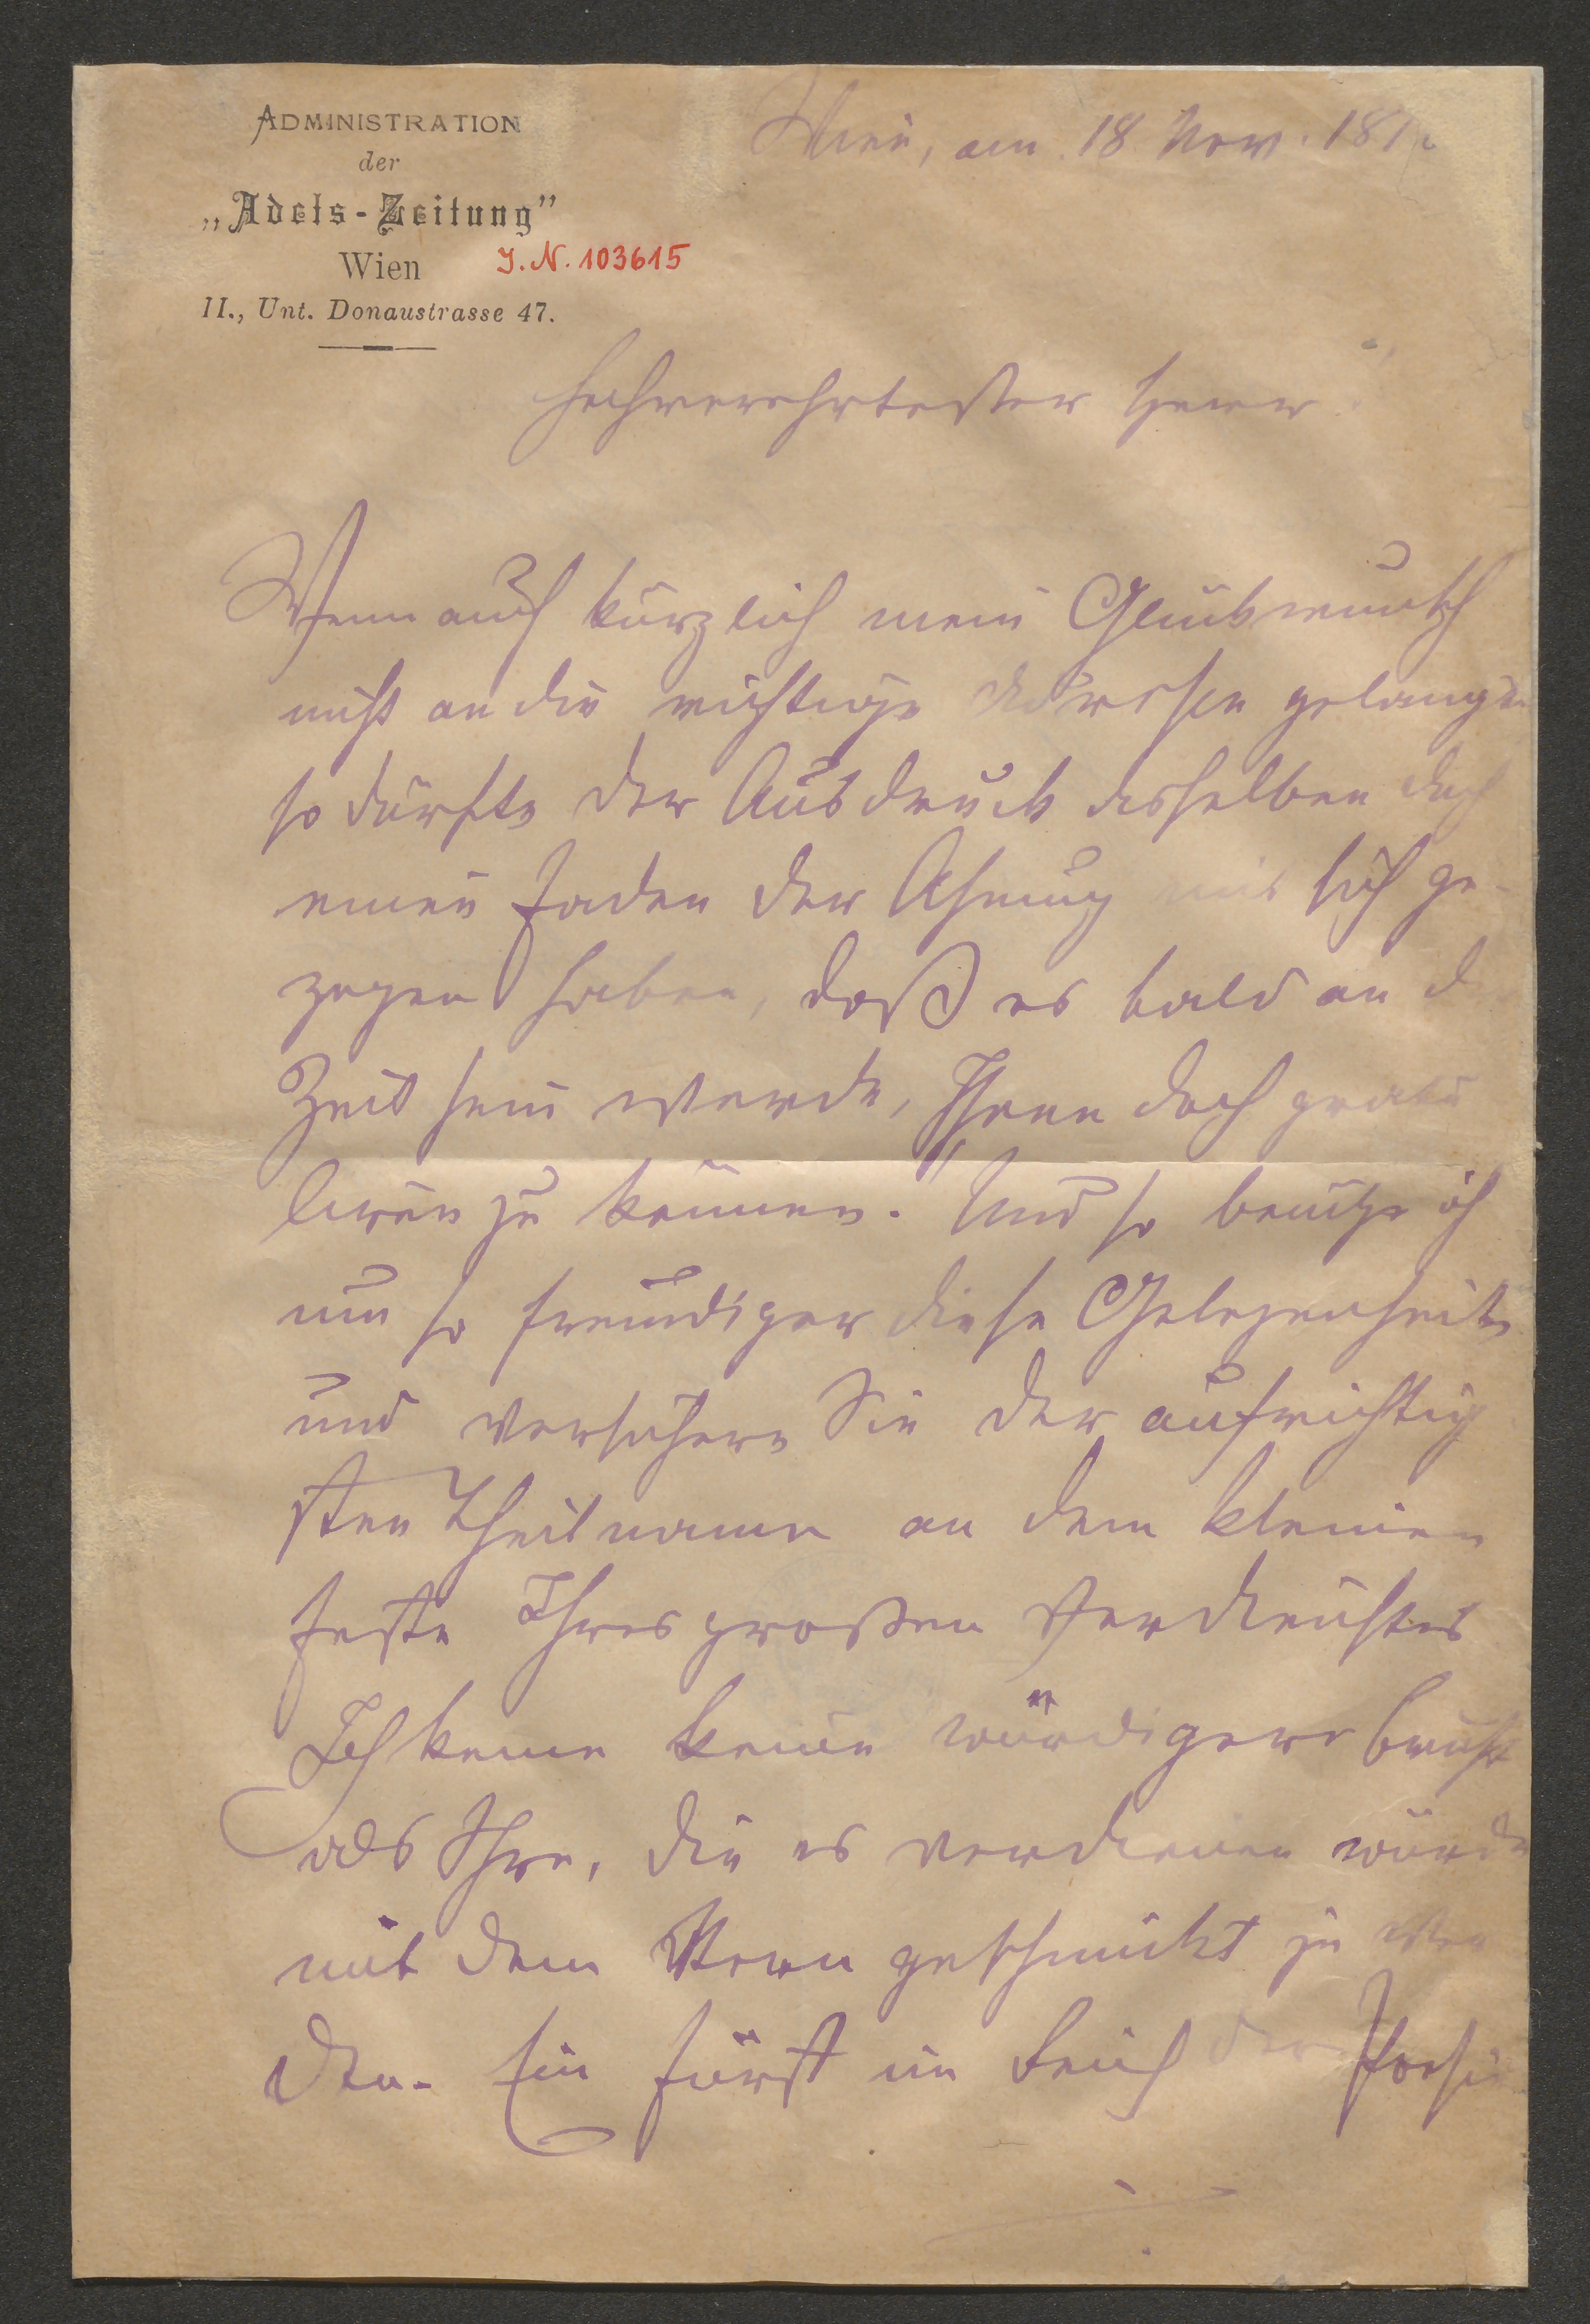 ADMINISTRATION
der
„Adels-Zeitung”
Wien
J. N. 103615
II., Unt. Donaustrasse 47.
Wien, am 18 Nov. 18
Hochverehrtester Herr
Wenn auch kürzlich mein Glückwunsch
nicht an die richtige Adressen gelangte
so dürfte der Ausdruck desselben doch
einen Faden der Ahnung mit sich ge-
zogen haben, daß es bald an d
Zeit sein werde, Ihnen doch gratu
liren zu können. Und so benütze ich
um so freudiger diese Gelegenheit
und versichere Sie der aufrichtig
sten Theilname an dem kleinen
Feste Ihres großen Verdienstes
Ich kenne keine würdigere Brust
als Ihre, die es verdienen würde
mit dem Stern geschmückt zu wer
den. Ein Fürst im Reich der Poesie